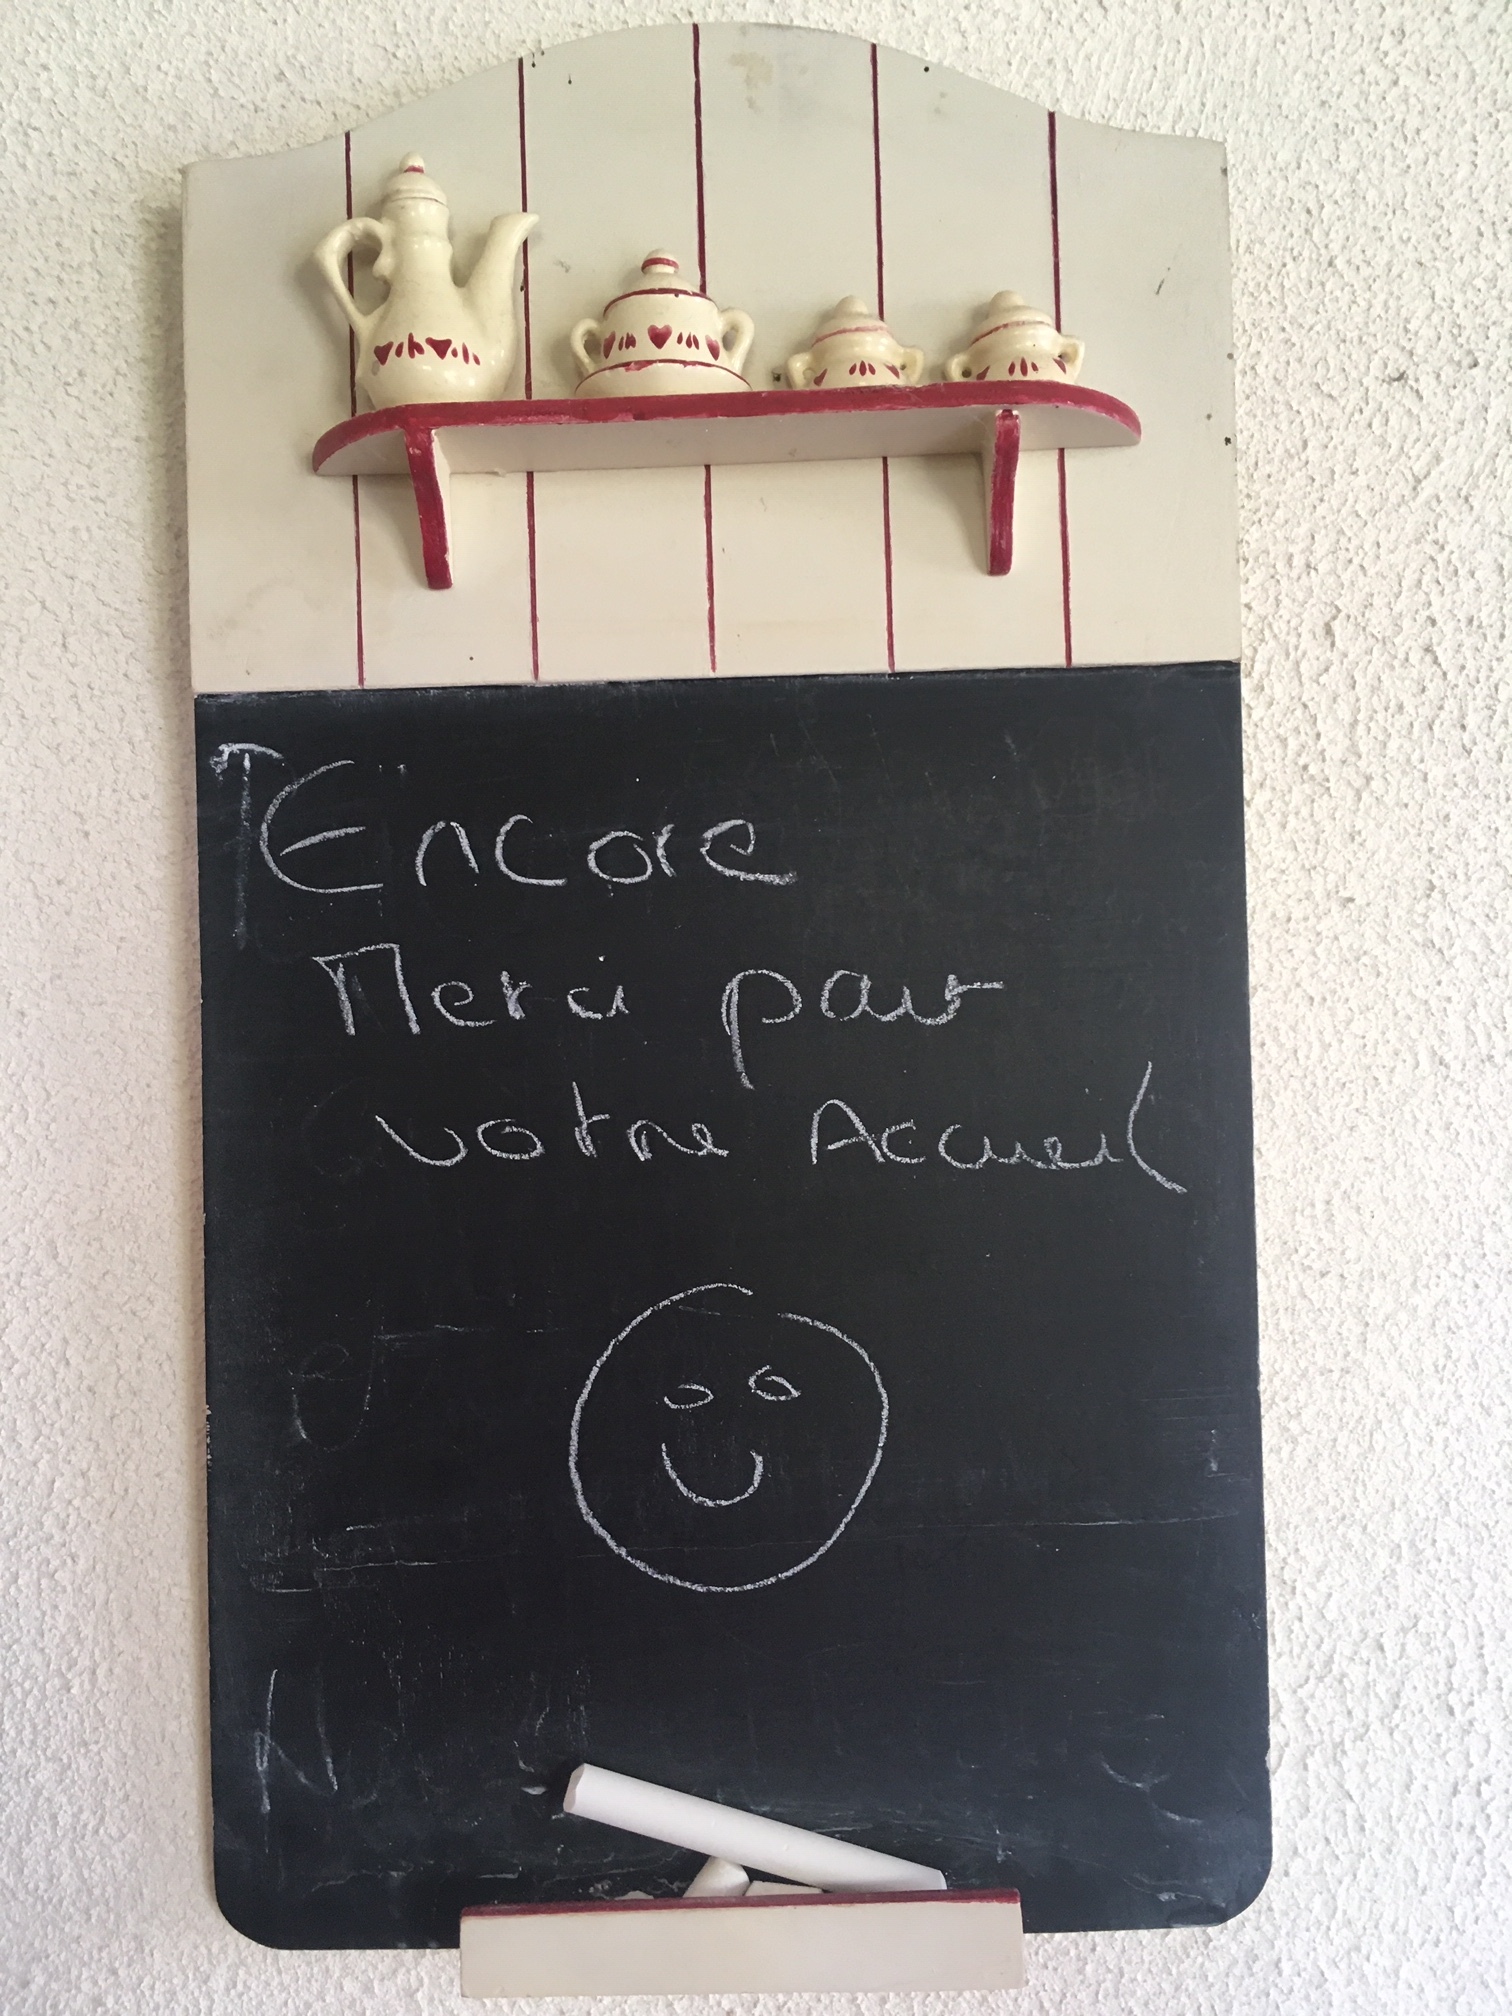 Encore
Merci pour
votre Accueil